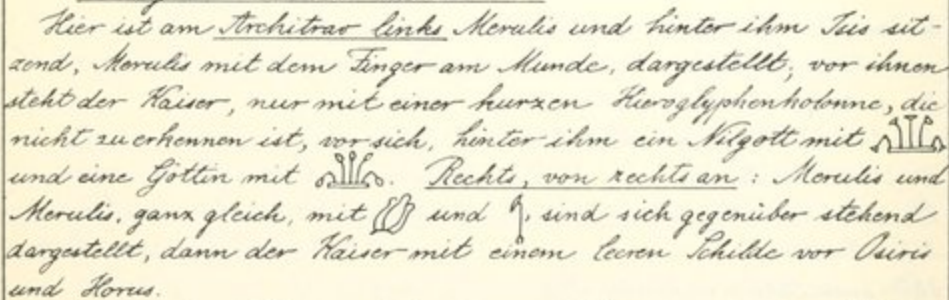 Hier ist am Architrav links Merulis und hinter ihm Isis sit-
zend, Merulis mit dem Finger am Munde, dargestellt; vor ihnen
steht der Kaiser, nur mit einer kurzen Hieroglyphenkolonne, die
nicht zu erkennen ist, vor sich, hinter ihm ein Nilgott mit
und eine Göttin mit . Rechts, von rechts an : Merulis und
Merulis, ganz gleich, mit und , sind sich gegenüber stehend
dargestellt, dann der Kaiser mit einem leeren Schilde vor Osiris
und Horus.